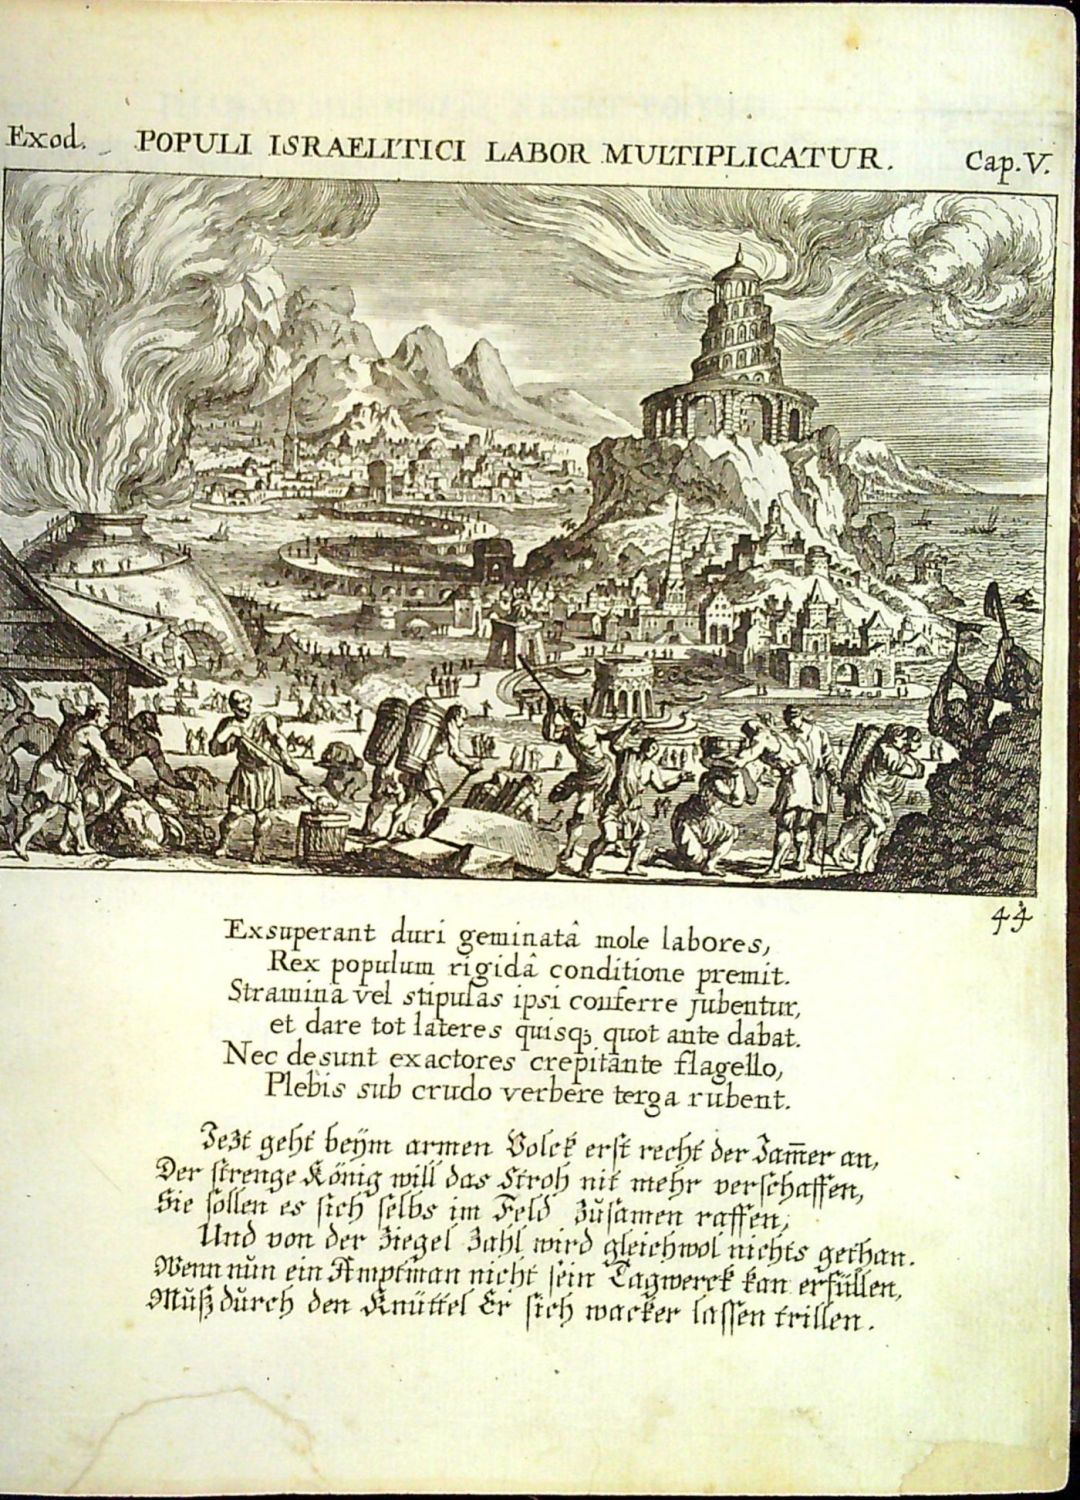 Exod. POPULI ISRAELITICI LABOR MULTIPLICATUR. Cap. V.
44
Exsuperant duri geminatâ mole labores,
Rex populum rigidâ conditione premit.
Stramina vel stipulas ipsi conferre jubentur,
et dare tot lateres quisq; quot ante dabat.
Nec desunt exactores crepitante flagello,
Plebis sub crudo verbere terga rubent.
Jezt geht beÿm armen Volck erst recht der Jam̄er an,
Der strenge König will das Stroh nit mehr verschaffen,
Sie sollen es sich selbs im Feld zusamen raffen,
Und von der Ziegel Zahl wird gleichwol nichts gethan.
Wenn nun ein Amptman nicht sein Tagwerck kan erfüllen,
Muß durch den Knüttel Er sich wacker lassen trillen.